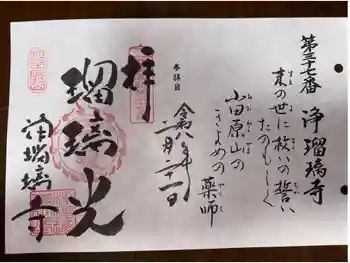 第三十七番 浄瑠璃寺
来の世に救いの誓い
たのもしく
小田原山の
きよめの薬師
参拝日
令和八年
二月二十一日
拝
瑠璃光
浄瑠璃寺